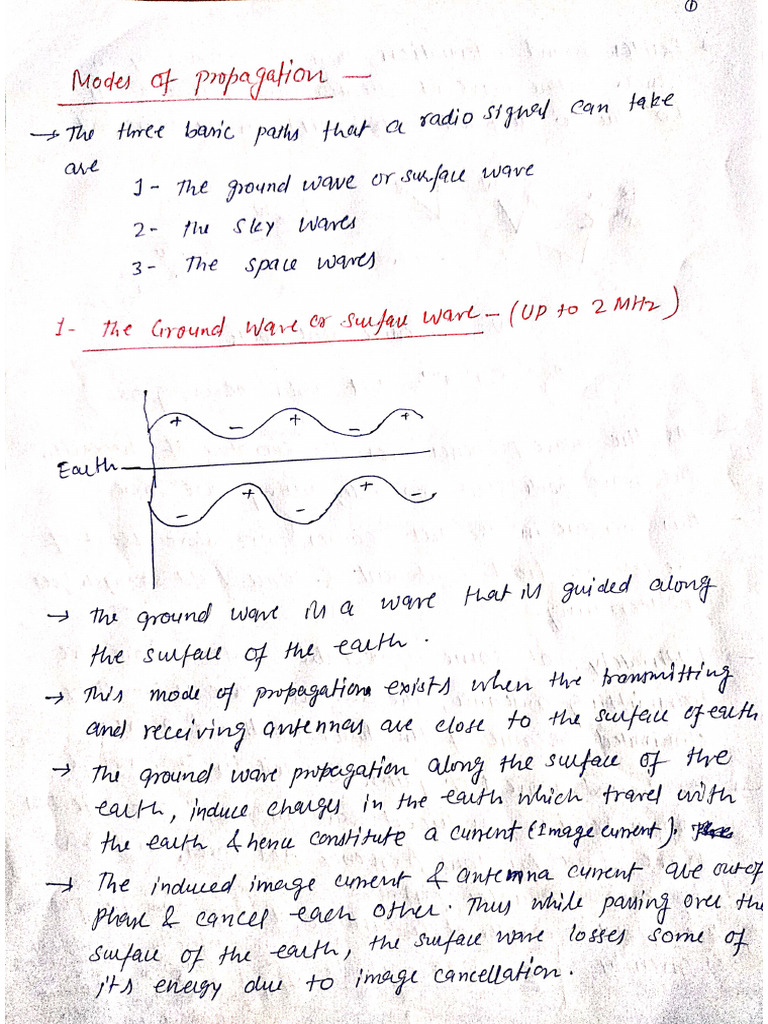 ①
Modes of propagation —
→ The three basic paths that a radio signal can take
are
1- The ground wave or surface wave
2- the Sky waves
3- The space waves
1- The Ground wave or surface wave – (UP to 2 MHz)
+ - + - +
Earth
- + - + -
→ The ground wave is a wave that is guided along
the surface of the earth.
→ This mode of propagation exists when the transmitting
and receiving antennas are close to the surface of earth
→ The ground wave propagation along the surface of the
earth, induce charges in the earth which travel with
the earth & hence constitute a current (Image current).
→ The induced image current & antenna current are out of
phase & cancel each other. Thus while passing over the
surface of the earth, the surface wave losses some of
its energy due to image cancellation.